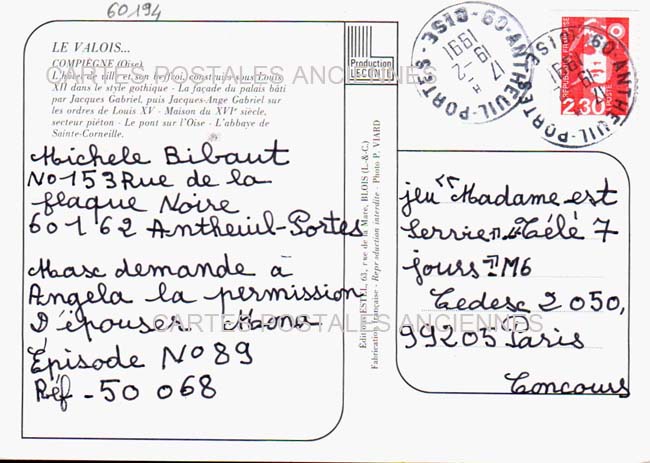 60194
LE VALOIS...
COMPIÈGNE (Oise)
L'hôtel de ville et son beffroi, construits sous Louis
XII dans le style gothique - La façade du palais bâti
par Jacques Gabriel, puis Jacques-Ange Gabriel sur
les ordres de Louis XV - Maison du XVIe siècle,
secteur piéton - Le pont sur l'Oise - L'abbaye de
Sainte-Corneille.
CARTES POSTALES ANCIENNES
Michele Bibaut
No 153 Rue de la
flaque Noire
60162 Antheuil-Portes
Maxe demande à
Angela la permission
D'épouser.. Mona
Épisode No 89
Réf - 50 068
CARTES POSTALES ANCIENNES
Production
LECONTE
Éditions ESTEL, 63, rue de la Mare, BLOIS (L.-&-C.)
Fabrication française - Reproduction interdite - Photo P. VIARD
60-ANTHEUIL-PORTES - OISE
17 H
19-2
1991
60-ANTHEUIL-PORTES OISE
17 H
19-2
1991
RÉPUBLIQUE FRANÇAISE
2,30
POSTE
jeu "Madame est
Servie" Télé 7
jours M6
Cedesc 2 050,
99205 Paris
Concours